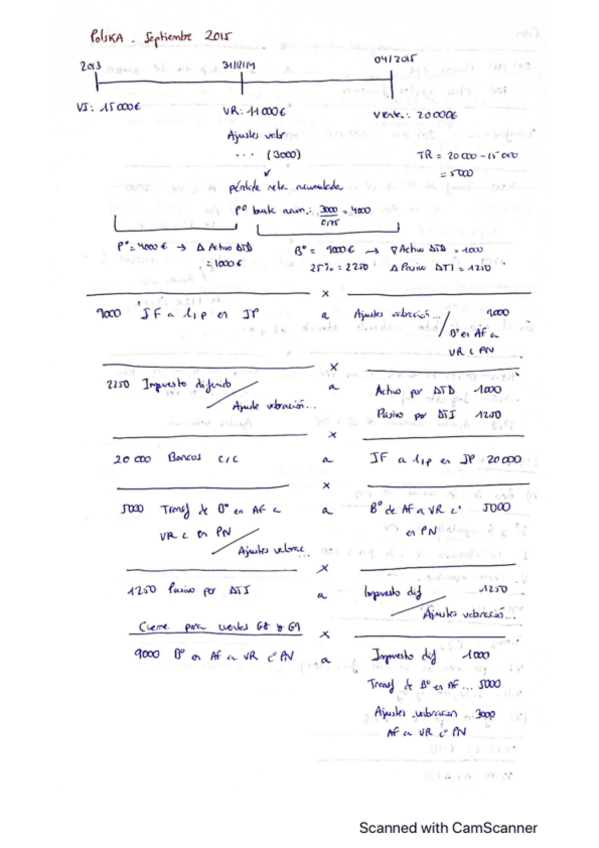 Polska. Septiembre 2015
2013 31/12/14 04/2015
VI: 15000€ VR: 11000€ Venta: 20000€
Ajustes valor
... (3000) TR = 20000 - 15000
= 5000
pérdida neta acumulada
Pº bruta acum.: 3000/0,75 = 4000
Pº = 4000€ → Δ Activo DTD Bº = 9000€ → ∇ Activo DTD = 1000
= 1000€ 25% = 2250 Δ Pasivo DTI = 1250
x
9000 IF a l/p en IP a Ajustes valoración... 9000
/ Bº en AF a
VR c PN
x
2250 Impuesto diferido a Activo por DTD 1000
/ Ajuste valoración... Pasivo por DTI 1250
x
20000 Bancos c/c a IF a l/p en IP 20000
x
5000 Transf de Bº en AF a a Bº de AF a VR c 5000
VR c en PN en PN
/ Ajustes valorac...
x
1250 Pasivo por DTI a Impuesto dif 1250
/ Ajustes valoración...
Cierre para cuentas G8 y G9
x
9000 Bº en AF a VR cº PN a Impuesto dif 1000
Transf de Bº en AF... 5000
Ajustes valoración 3000
AF a VR cº PN
Scanned with CamScanner